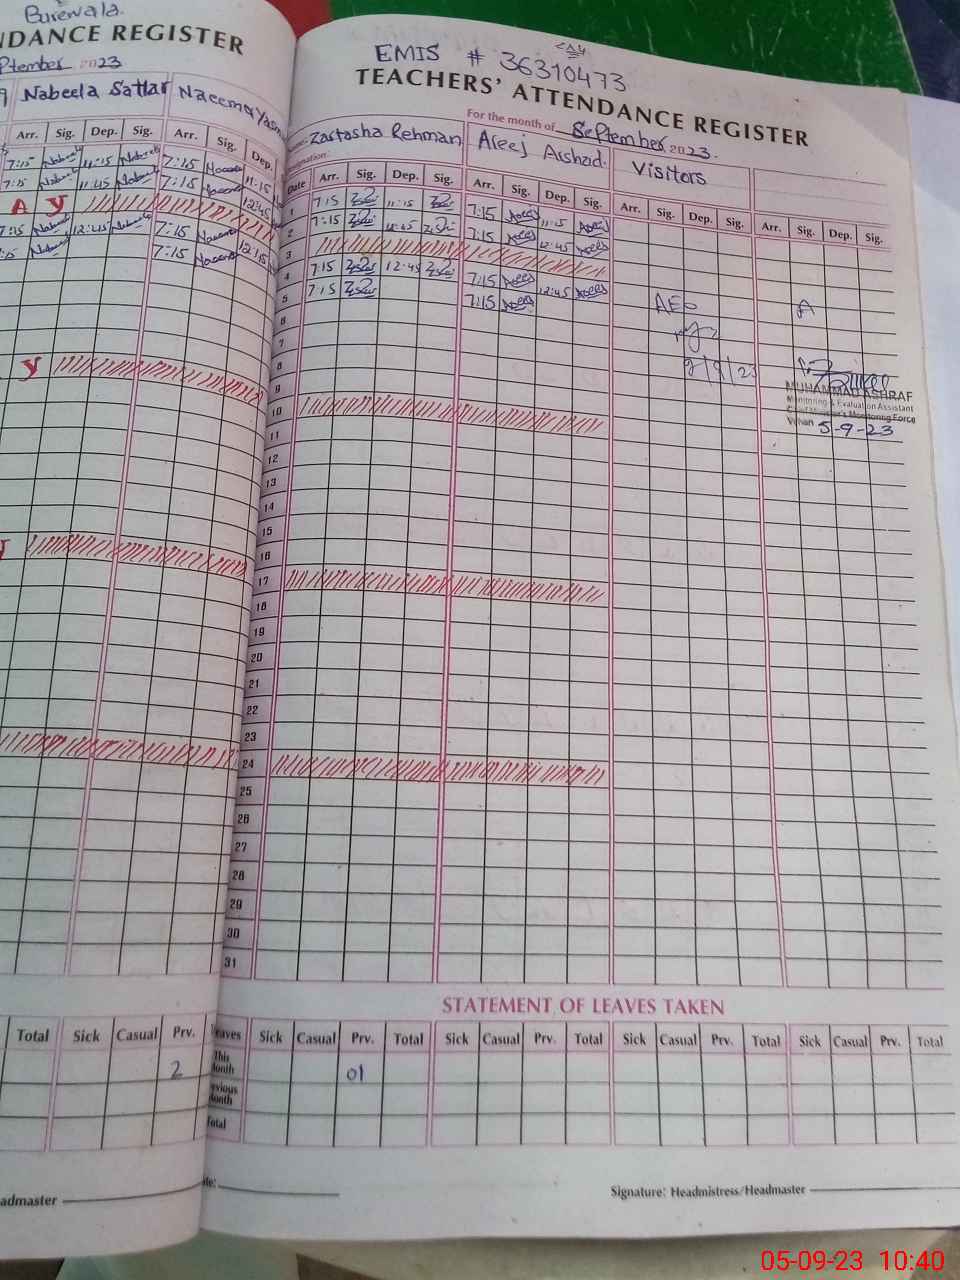 Burewala.
NDANCE REGISTER
ptember 2023
Nabeela Sattar Naeema Yasm
Arr. Sig. Dep. Sig. Arr. Sig. Dep.
7:15 Nabeela 11:15 Nabeela 7:15 11:15
7:15 Nabeela 11:45 Nabeela 7:15
A Y
7:15 12:45 7:15
7:15 12:15
Y
Total Sick Casual Prv.
2
eadmaster
EMIS # 36310473
TEACHERS' ATTENDANCE REGISTER
For the month of September 2023.
Zartasha Rehman Areej Arshad. Visitors
Date Arr. Sig. Dep. Sig. Arr. Sig. Dep. Sig. Arr. Sig. Dep. Sig. Arr. Sig. Dep. Sig.
1 7:15 11:15 7:15 Areej 11:15 Areej
2 7:15 7:15 Areej 12:45 Areej
3
4 7:15 12:45 7:15 Areej 12:45 Areej
5 7:15 7:15 Areej AEO A
6
7
8
9
MUHAMMAD ASHRAF
Monitoring & Evaluation Assistant
Chief Minister's Monitoring Force
Vehari 5-9-23
10
11
12
13
14
15
16
17
18
19
20
21
22
23
24
25
26
27
28
29
30
31
STATEMENT OF LEAVES TAKEN
Leaves Sick Casual Prv. Total Sick Casual Prv. Total Sick Casual Prv. Total Sick Casual Prv. Total
This Month 01
Previous Month
Total
Signature: Headmistress/Headmaster
05-09-23 10:40